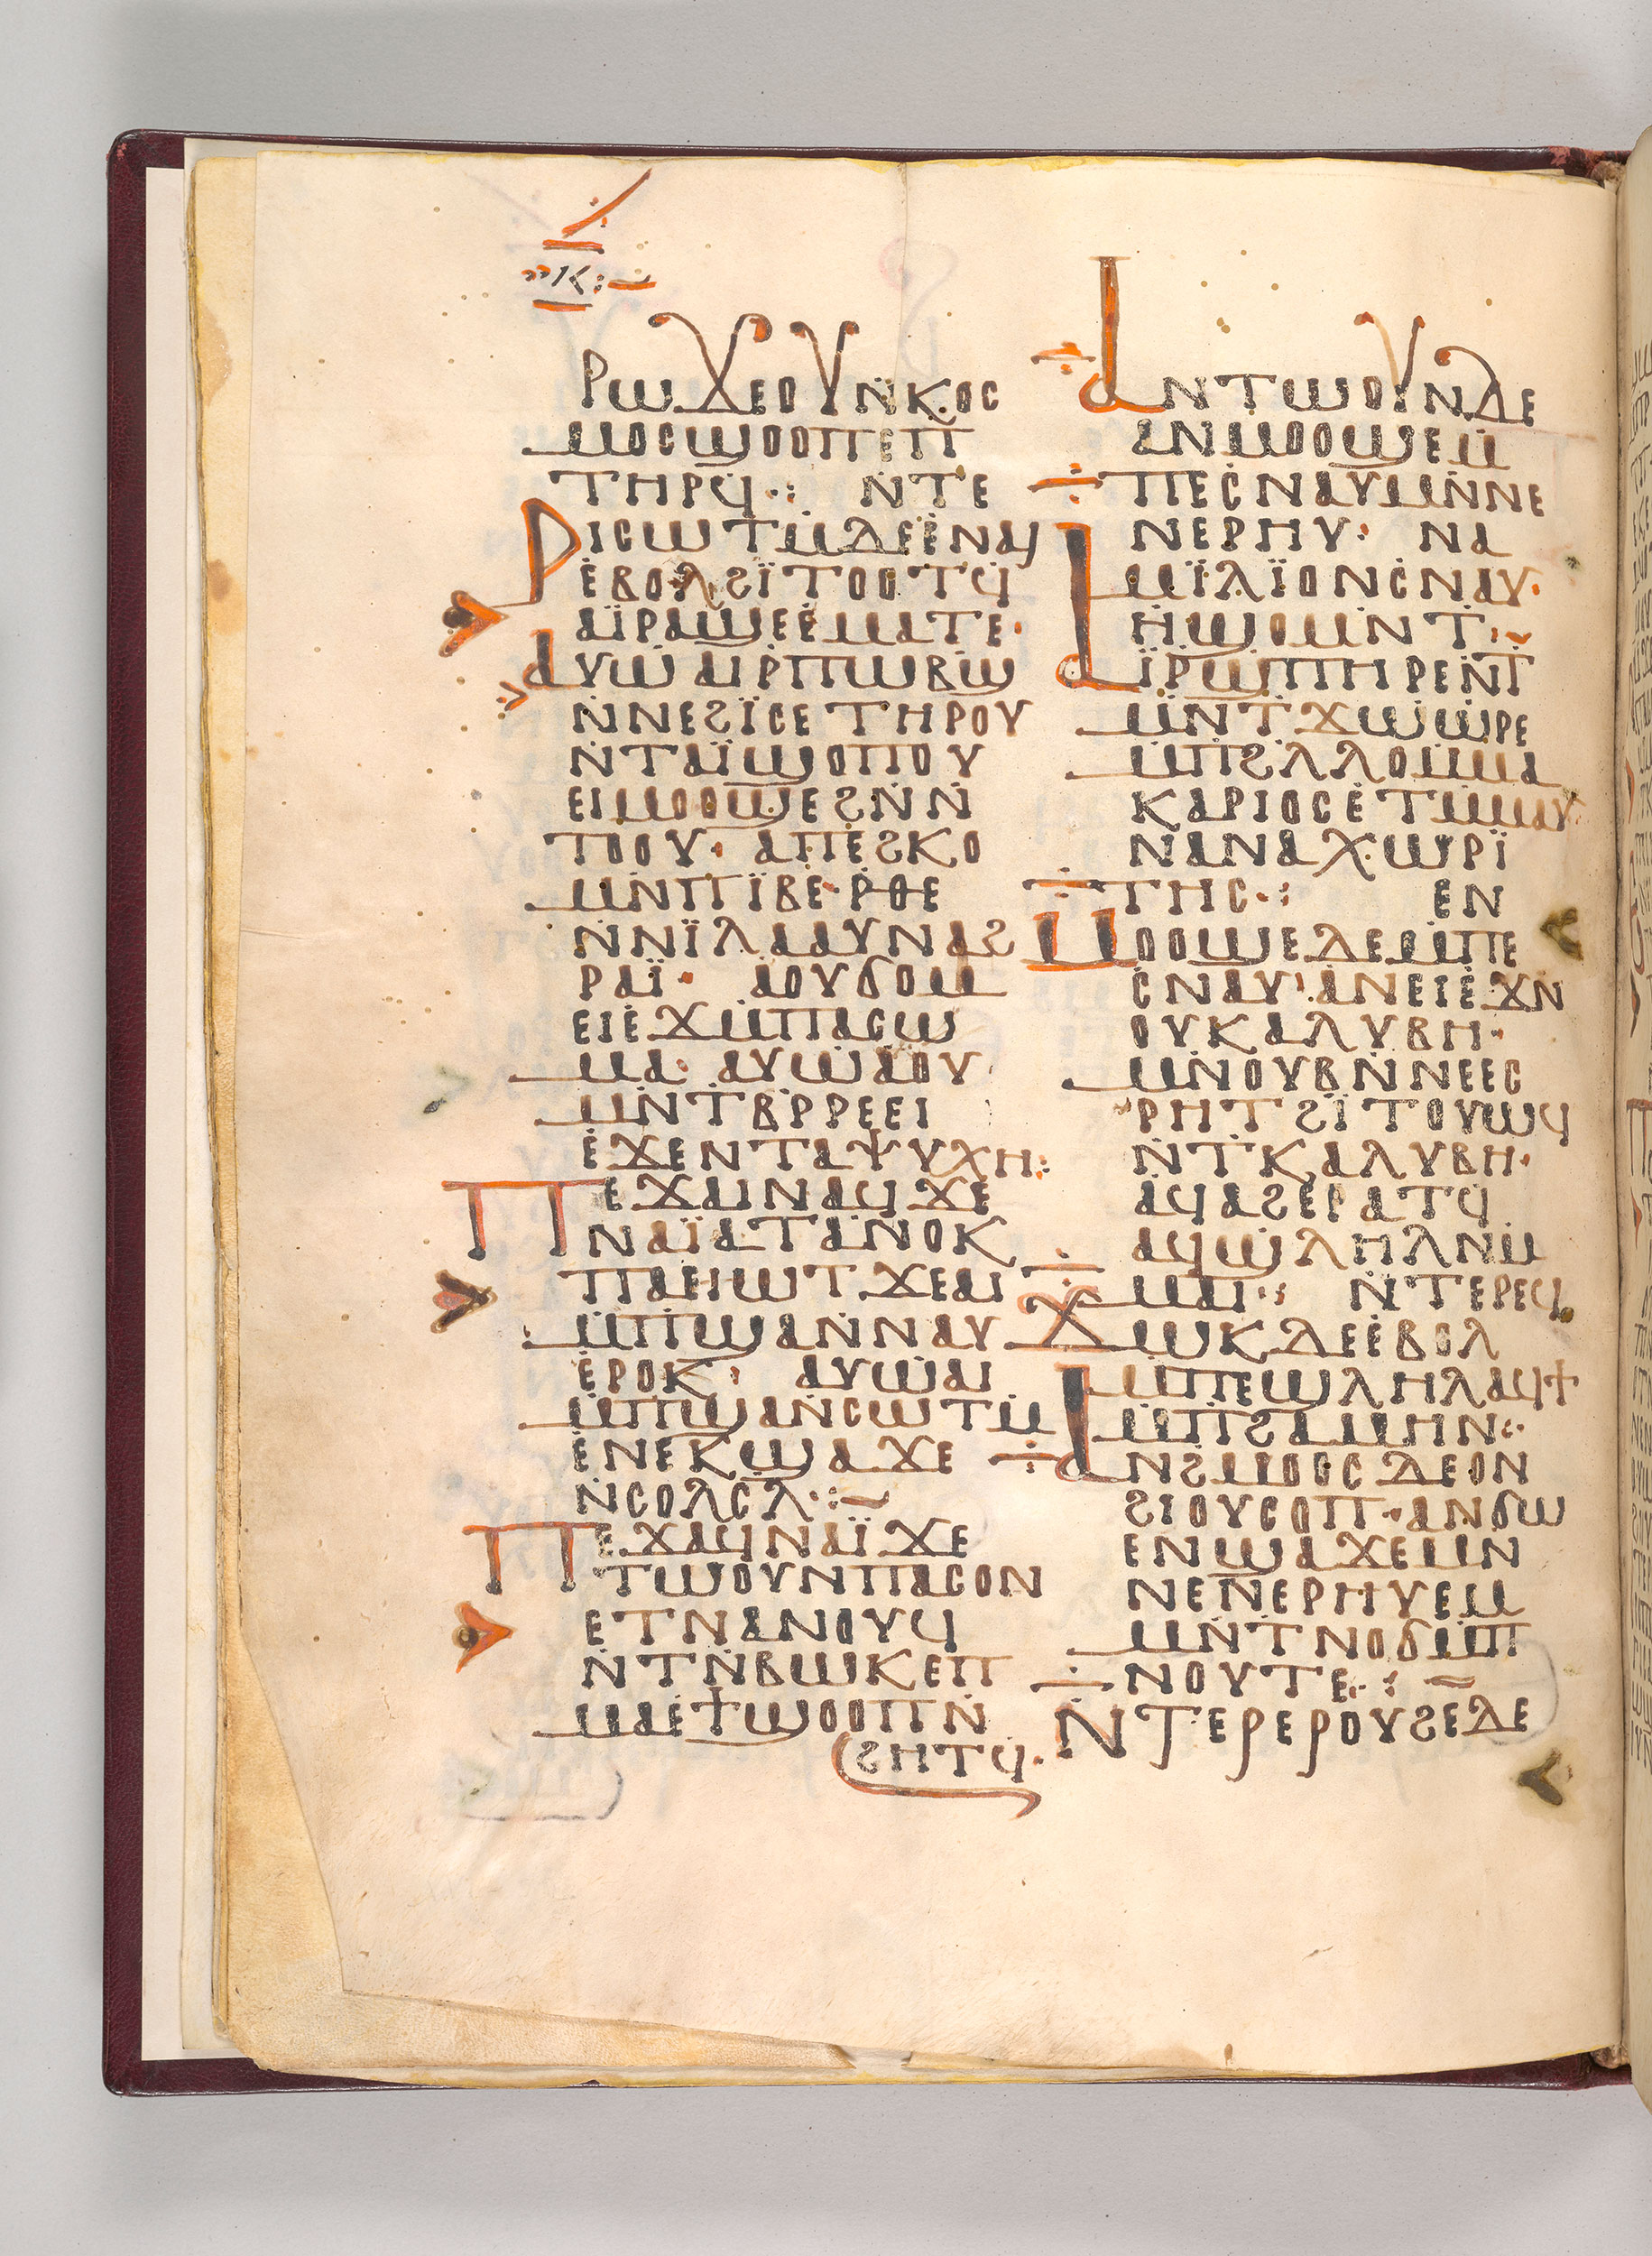 ⲕ
ⲣⲱϫⲉⲟⲩⲛ̇ⲕⲟⲥ
ⲙⲟⲥϣⲟⲟⲡⲉⲡ̇
ⲧⲏⲣϥ·⁚ ⲛ̇ⲧⲉ
ⲣⲓⲥⲱⲧⲙ̇ⲇⲉⲉ̇ⲛⲁⲓ
ⲉ̇ⲃⲟⲗϩⲓ̈ⲧⲟⲟⲧϥ̇
ⲁⲓ̈ⲣⲁϣⲉⲉ̇ⲙⲁⲧⲉ·
ⲁⲩⲱⲁⲓⲣ̇ⲡⲱⲃϣ̇
ⲛ̇ⲛⲉϩⲓ̈ⲥⲉⲧⲏⲣⲟⲩ
ⲛ̇ⲧⲁⲓ̈ϣⲟⲡⲟⲩ
ⲉⲓⲙⲟⲟϣⲉϩⲛ̇ⲛ̇
ⲧⲟⲟⲩ· ⲁⲡⲉϩⲕⲟ
ⲙⲛ̇ⲡⲓ̈ⲃⲉ·ⲣ̇ⲑⲉ
ⲛ̇ⲛⲓ̈ⲗⲁⲁⲩⲛⲁϩ
ⲣⲁⲓ̈· ⲁⲟⲩϭⲟⲙ
ⲉⲓⲉ̇ϫⲙ̇ⲡⲁⲥⲱ
ⲙⲁ· ⲁⲩⲱⲁ̇ⲟⲩ
ⲙⲛ̇ⲧⲃ̇ⲣ̇ⲣⲉⲉⲓ
ⲉ̇ϫⲉⲛⲧⲁⲯⲩⲭⲏ⁚
ⲡⲉϫⲁⲓⲛⲁϥϫⲉ
ⲛⲁⲓ̈ⲁⲧⲁⲛⲟⲕ
ⲡⲁⲉⲓⲱⲧϫⲉⲁⲓ
ⲙ̇ⲡ̇ϣⲁⲛ̇ⲛⲁⲩ
ⲉ̇ⲣⲟⲕ· ⲁⲩⲱⲁⲓ
ⲙ̇ⲡ̇ϣⲁⲛ̇ⲥⲱⲧⲙ̇
ⲉ̇ⲛⲉⲕϣⲁϫⲉ
ⲛ̇ⲥⲟⲗⲥⲗ̇·⁚~
ⲡⲉϫⲁϥⲛⲁⲓ̈ϫⲉ
ⲧⲱⲟⲩⲛⲡⲁⲥⲟⲛ
ⲉⲧⲛⲁⲛⲟⲩϥ
ⲛ̇ⲧⲛ̇ⲃⲱⲕⲉⲡ
ⲙⲁⲉ̇ϯϣⲟⲟⲡⲛ̇
ϩⲏⲧϥ̇·
ⲁⲛⲧⲱⲟⲩⲛⲇⲉ
ⲁⲛⲙⲟⲟϣⲉⲙ̇
ⲡⲉⲥⲛⲁⲩⲙⲛ̇ⲛⲉ
ⲛⲉⲣⲏⲩ· ⲛⲁ
ⲙⲓ̈ⲗⲓ̈ⲟⲛⲥⲛⲁⲩ·
ⲏ̇ϣⲟⲙⲛ̇ⲧ·⁚~
ⲁⲓ̈ⲣ̇ϣⲡⲏⲣⲉⲛ̇ⲧ̇
ⲙⲛ̇ⲧϫⲱⲱⲣⲉ
ⲙ̇ⲡϩⲗ̇ⲗⲟⲙ̇ⲙⲁ
ⲕⲁⲣⲓⲟⲥⲉ̇ⲧⲙ̇ⲙⲁⲩ
ⲛ̇ⲁⲛⲁⲭⲱⲣⲓ̈
ⲧⲏⲥ·⁚ ⲉⲛ
ⲙⲟⲟϣⲉⲇⲉⲙ̇ⲡⲉ
ⲥⲛⲁⲩ·ⲁⲛⲉⲓⲉ̇ϫⲛ
ⲟⲩⲕⲁⲗⲩⲃⲏ·
ⲙⲛ̇ⲟⲩⲃⲛ̇ⲛⲉⲉⲥ
ⲣⲏⲧϩⲓ̈ⲧⲟⲩⲱϥ
ⲛ̇ⲧ̇ⲕⲁⲗⲩⲃⲏ·
ⲁϥⲁϩⲉⲣⲁⲧϥ̇
ⲁϥϣⲗⲏⲗⲛⲙ̇
ⲙⲁⲓ·⁚ ⲛ̇ⲧⲉⲣⲉϥ
ϫⲱⲕⲇⲉⲉ̇ⲃⲟⲗ
ⲙ̇ⲡⲉϣⲗⲏⲗⲁϥϯ
ⲙ̇ⲡϩⲁⲙⲏⲛ⁖
ⲁⲛϩⲙⲟⲟⲥⲇⲉⲟⲛ
ϩⲓⲟⲩⲥⲟⲡ·ⲁⲛϭⲱ
ⲉⲛϣⲁϫⲉⲙⲛ
ⲛⲉⲛⲉⲣⲏⲩⲉⲙ̇
ⲙⲛ̇ⲧⲛⲟϭⲙ̇ⲡ
ⲛⲟⲩⲧⲉ·⁚~
ⲛⲧⲉⲣⲉⲣⲟⲩϩⲉⲇⲉ